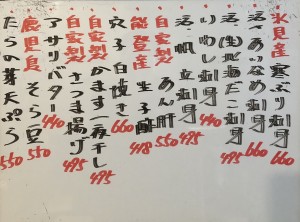 氷見産 寒ぶり刺身 660
活〆あいなめ刺身 660
活〆(生)北海だこ刺身 495
いわし刺身 440
活 帆立刺身 495
自家製 あん肝 550
能登産 生子酢 418
穴子白焼き 660
自家製 かます一夜干し 495
自家製 さつま揚げ 495
アサリバター 440
鹿児島 そら豆 550
たらの芽天ぷら 550